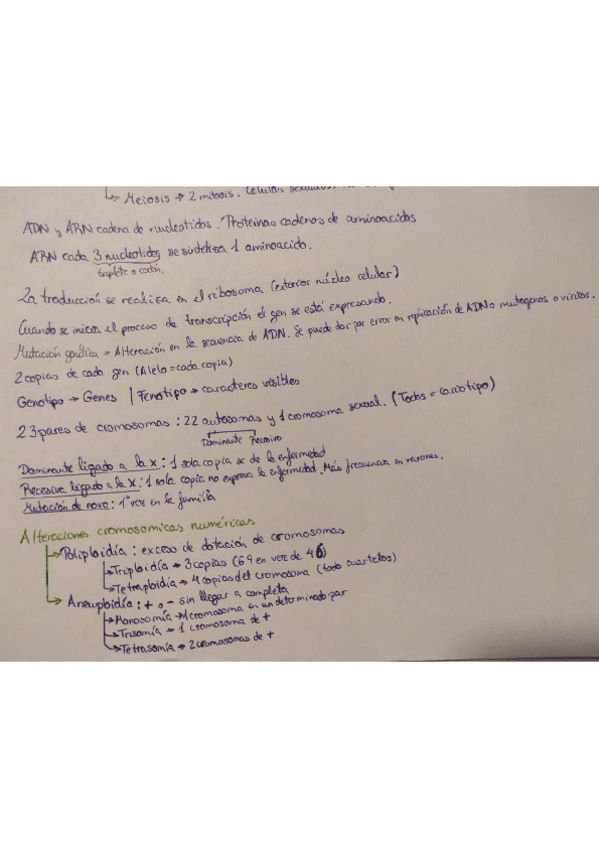 ↳ Meiosis → 2 mitosis. Células sexuales,
ADN y ARN cadena de nucleotidos. Proteinas cadenas de aminoacidos
ARN cada 3 nucleotidos se sintetiza 1 aminoacido.
triplete o codón.
La traducción se realiza en el ribosoma (exterior núcleo celular)
Cuando se inicia el proceso de transcripción el gen se está expresando.
Mutación genética → Alteración en la secuencia de ADN. Se puede dar por error en replicación de ADN o mutagenos o viricos.
2 copias de cada gen (Alelo = cada copia)
Genotipo → Genes | Fenotipo → caracteres visibles
23 pares de cromosomas : 22 autosomas y 1 cromosoma sexual. (Todos = cariotipo)
Dominante Recesivo
Dominante ligado a la X : 1 sola copia se da la enfermedad
Recesiva ligado a la X : 1 sola copia no expresa la enfermedad. Más frecuencia en varones.
Mutación de novo : 1ª vez en la familia
Alteraciones cromosomicas numéricas
↳ Poliploidía : exceso de dotación de cromosomas
↳ Triploidía → 3 copias (69 en vez de 46)
↳ Tetraploidía → 4 copias del cromosoma (todo cuartetos)
↳ Aneuploidía : + o - sin llegar a completa
↳ Monosomía → 1 cromosoma en un determinado par
↳ Trisomía → 1 cromosoma de +
↳ Tetrasomía → 2 cromosomas de +